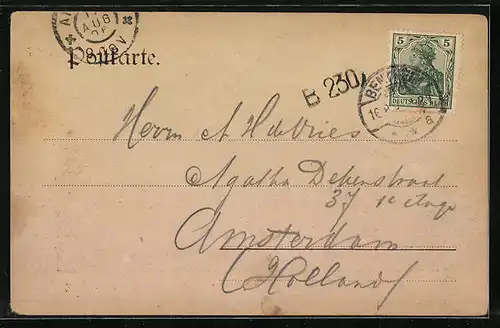 AUG
8-9 V
Postkarte.
B 230
5 5
DEUTSCHES
BENTHEIM
16
Herrn A H de Vries
Agatha Dekenstraat
37 1e etage
Amsterdam
(Holland)